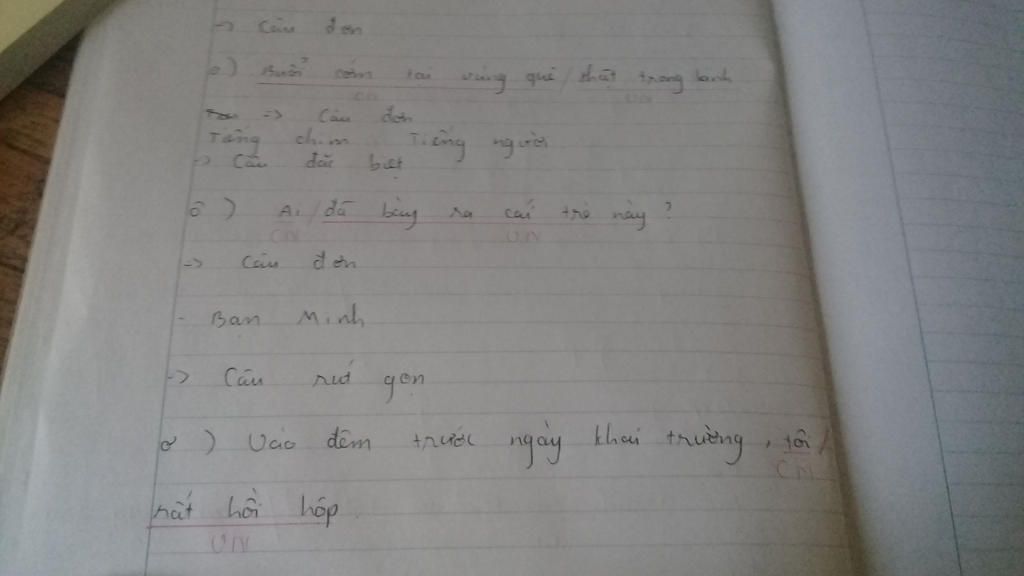 -> Câu đơn
o) Buổi sớm tại vùng quê / thật trong lành
CN VN
=> Câu đơn
Tiếng chim. Tiếng người.
-> Câu đặc biệt
ô) Ai / đã bày ra cái trò này?
CN VN
-> Câu đơn
- Bạn Minh
-> Câu rút gọn
ơ) Vào đêm trước ngày khai trường, tôi /
CN
rất hồi hộp.
VN